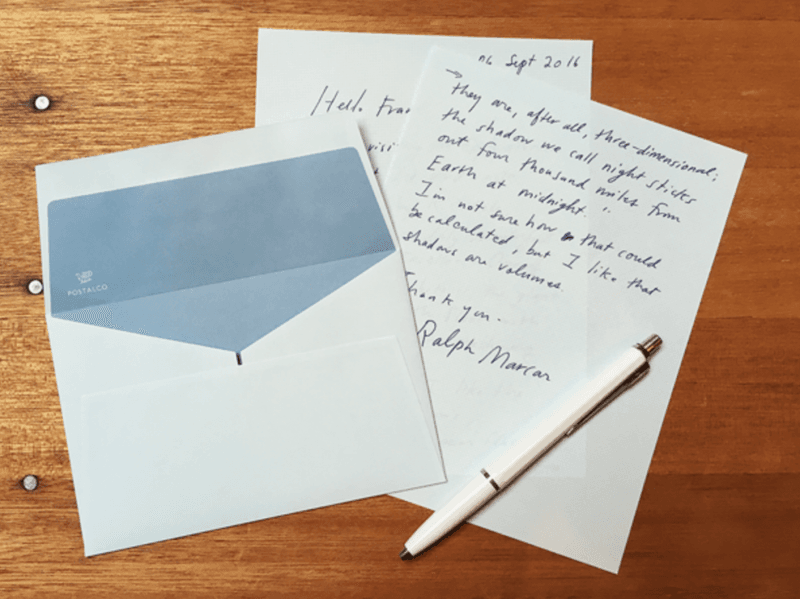 Sept 2016
Hello
they are, after all, three-dimensional;
the shadow we call night sticks
out four thousand miles from
Earth at midnight.
I'm not sure how that could
be calculated, but I like that
shadows are volumes.
Thank you.
Ralph
POSTALCO